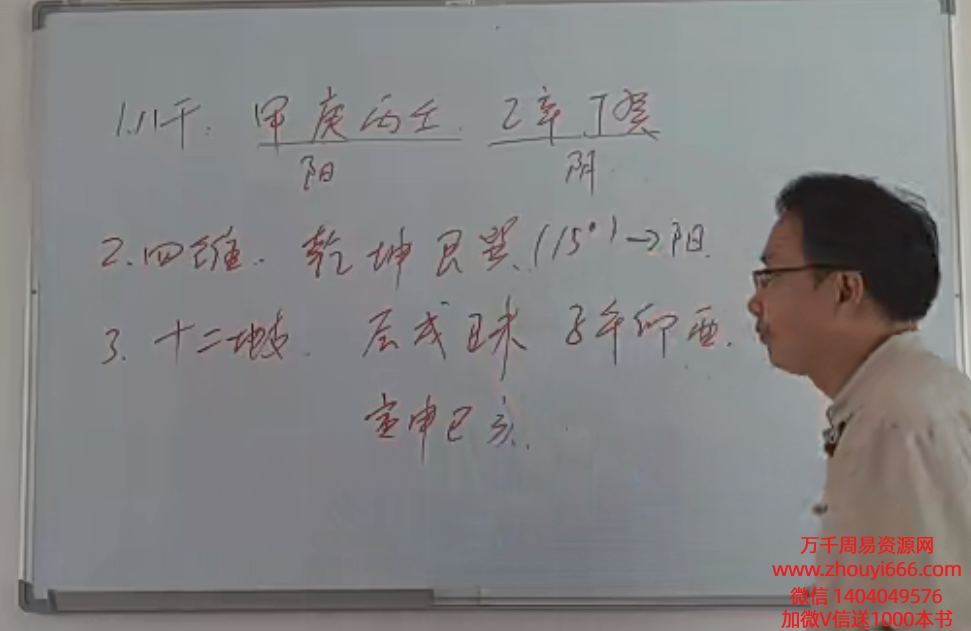 1.八干. 甲庚丙壬. 乙辛丁癸
阳 阴.
2.四维. 乾坤艮巽.(15°)→阳.
3. 十二地支. 辰戌丑未 子午卯酉.
寅申巳亥.
万千周易资源网
www.zhouyi666.com
微信 1404049576
加微V信送1000本书